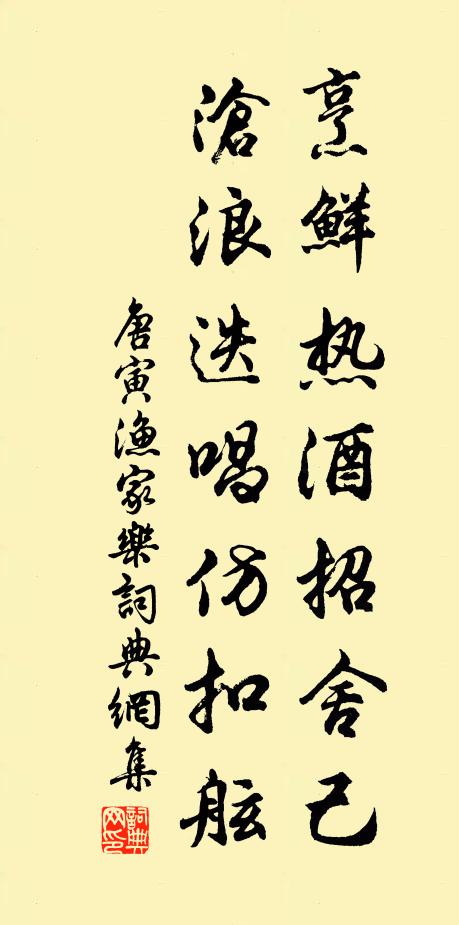 烹鮮热酒招舍己
滄浪迭唱仿扣舷
唐寅漁家樂詞典網集
詞典網印